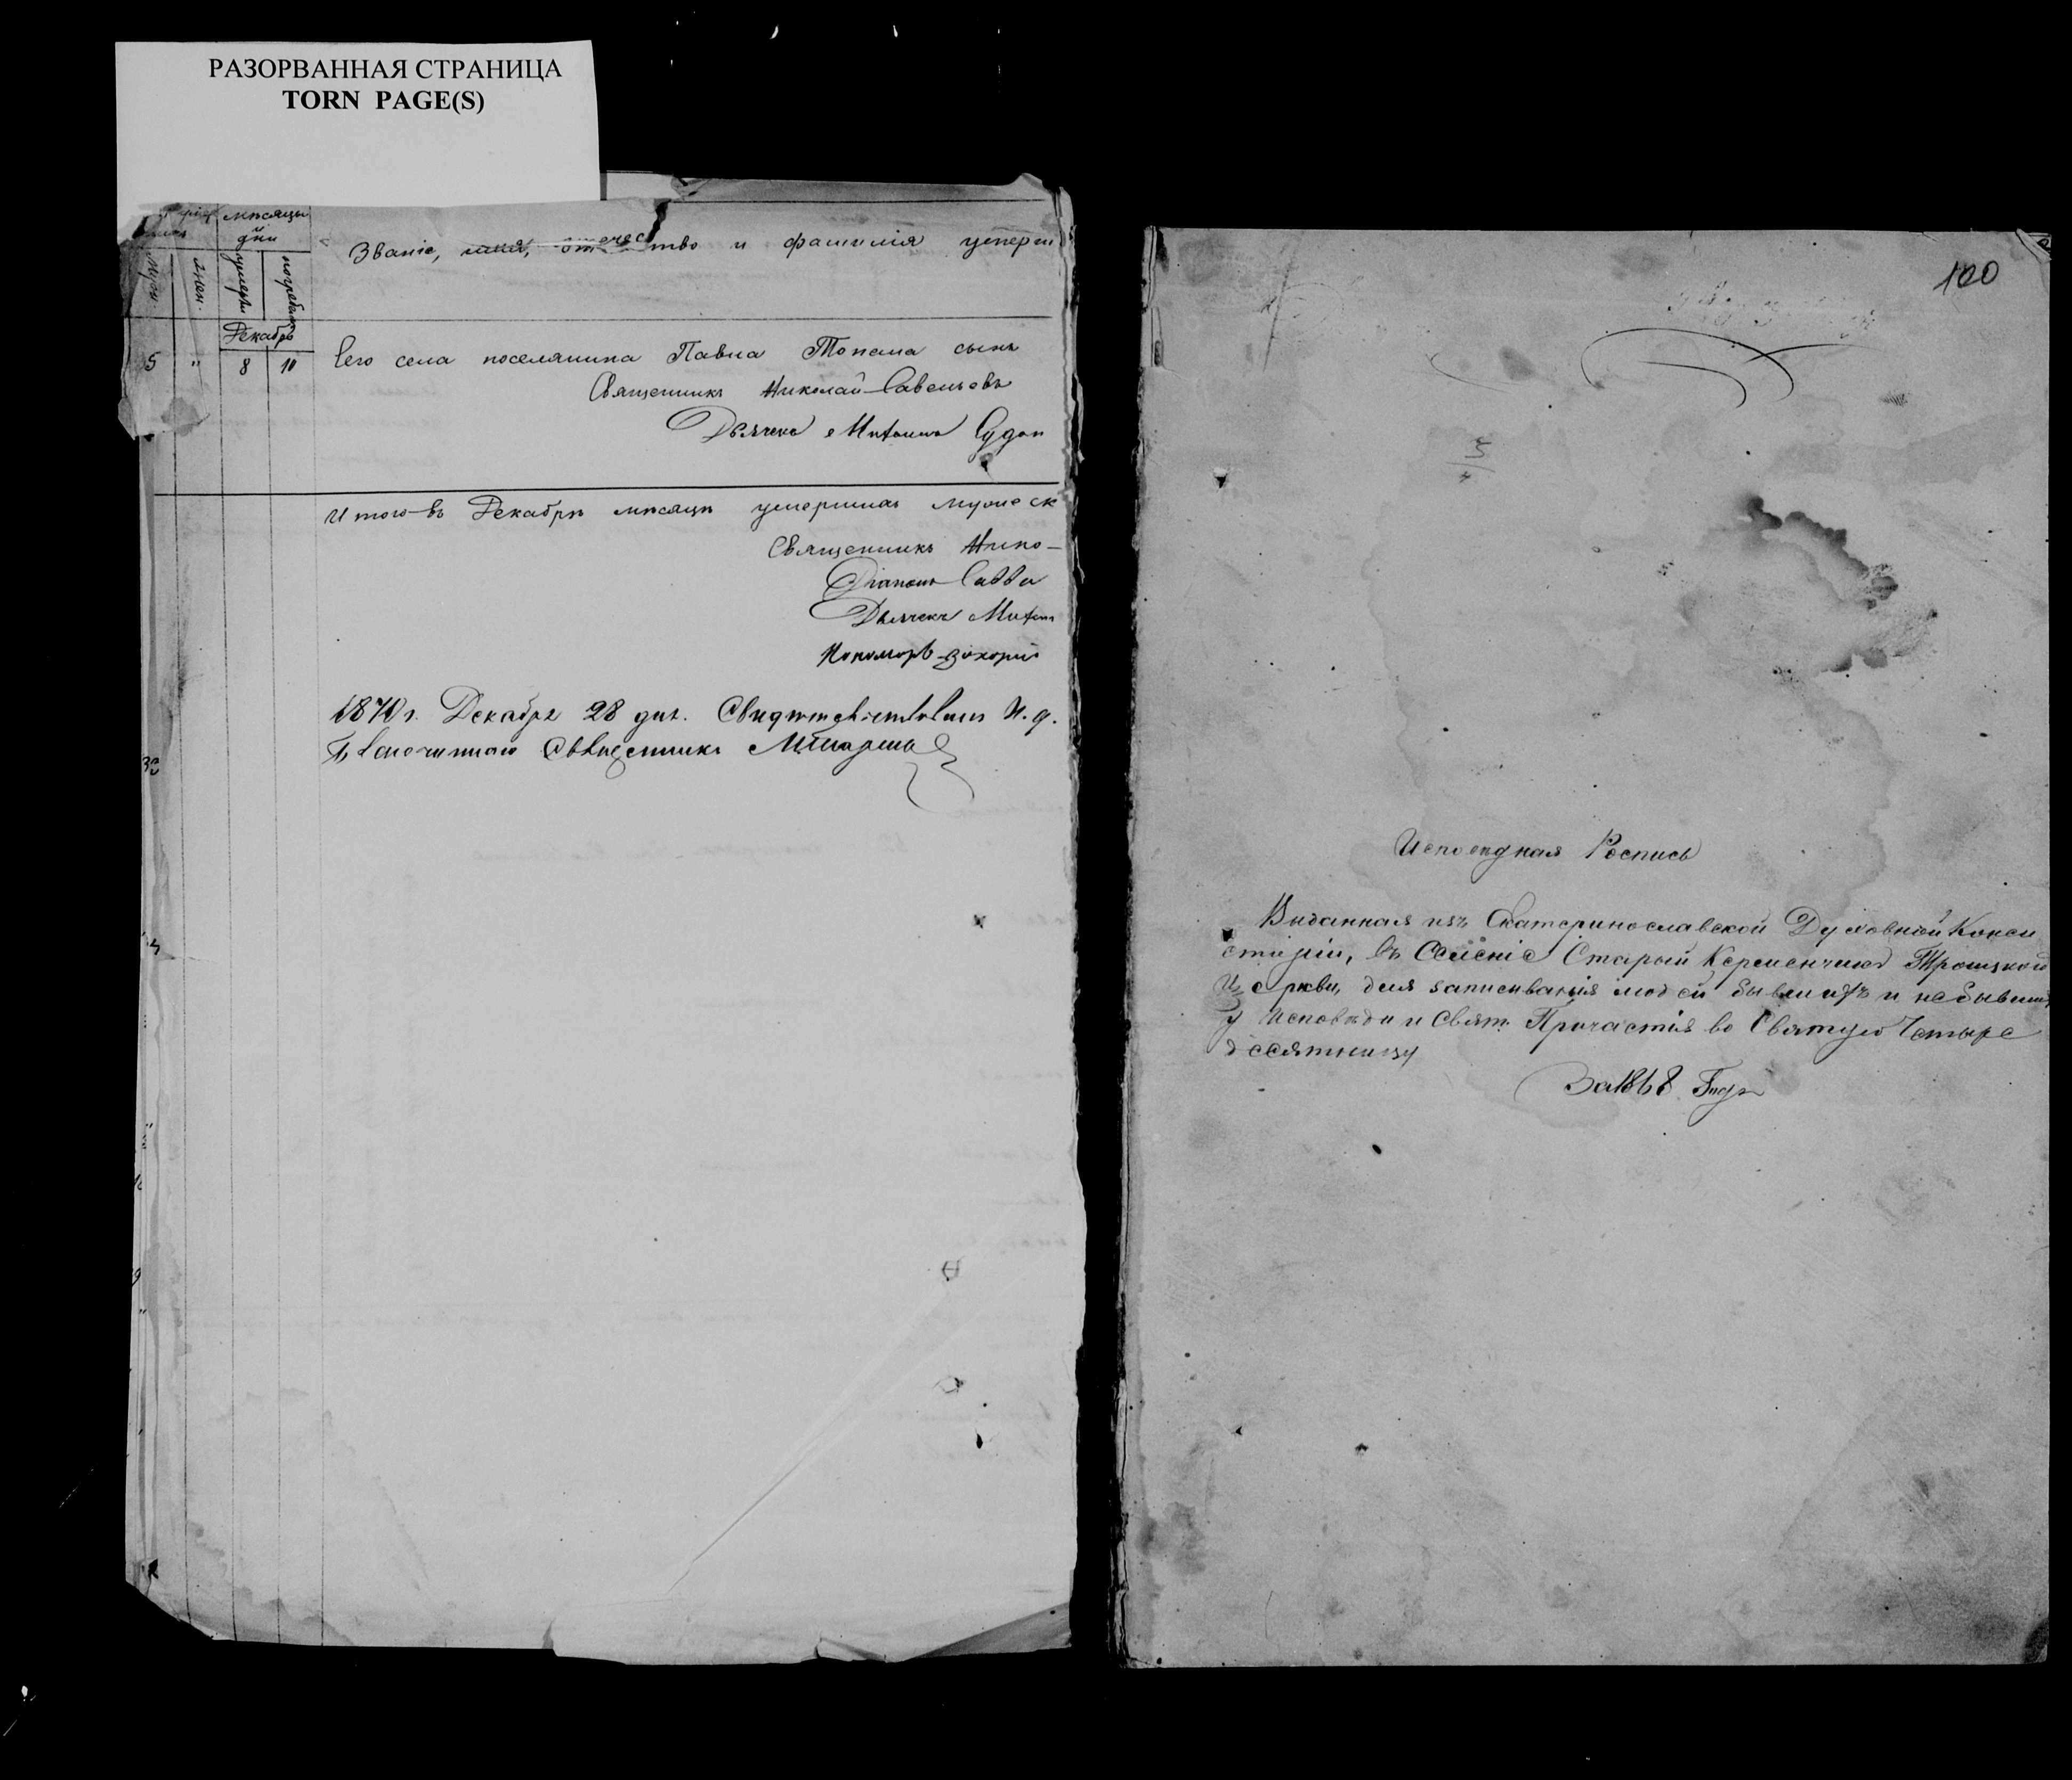 РАЗОРВАННАЯ СТРАНИЦА
TORN PAGE(S)
мѣсяцы
и
дни
Муж.
Жен.
умерш
погребен
Званіе, имя, отчество и фамилія умерш
Декабрь
5 " 8 10
Сего села поселянина Павла Топала сынъ
Священникъ Николай Савельевъ
Дьячекъ Митрофанъ
Итого въ Декабрѣ мѣсяцѣ умершихъ мужеск
Священникъ Нико-
Діаконъ Савва
Дьячекъ
Пономарь Захорій
1870 г. Декабря 28 дня. Свидѣтельствовалъ И. д.
Благочиннаго Священникъ
100
Исповѣдная Роспись
Виданная изъ Екатеринославской Духовной Конси
сторіи, въ Селеніе Старый Керменчикъ Троицкой
Церкви, для записиванія людей бывшихъ и небывших
у Исповѣди и Свят. Причастія во Святую Четыре
десятницу
За 1868 Годъ